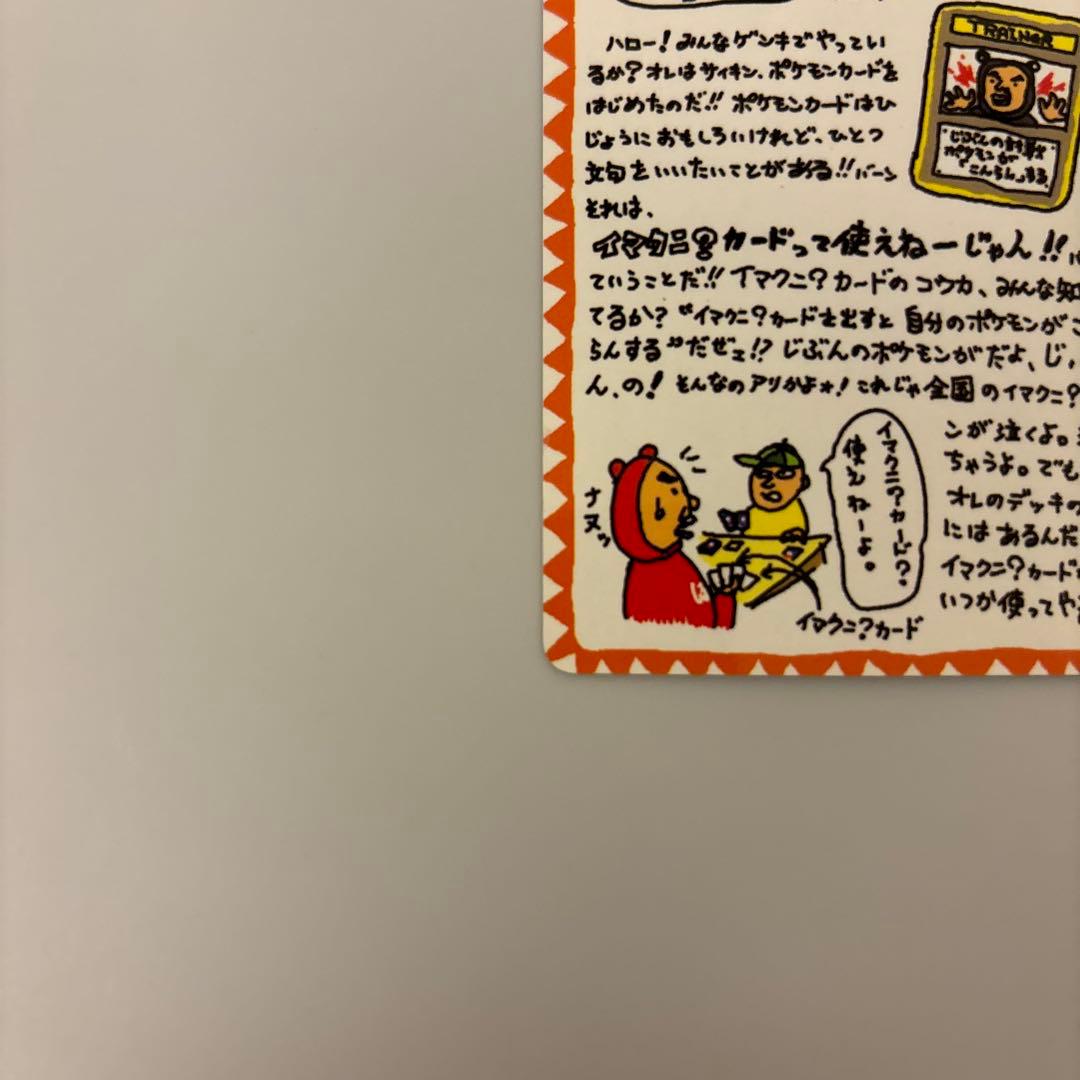 ハロー！みんなゲンキでやってい
るか？オレはサイキン、ポケモンカードを
はじめたのだ!!ポケモンカードはひ
じょうにおもしろいけれど、ひとつ
文句をいいたいことがある!!バーン
それは、
イマクニ？カードって使えねーじゃん!!
ていうことだ!!イマクニ？カードのコウカ、みんな知
てるか？“イマクニ？カードを出すと自分のポケモンがこ
らんする”だぜェ!?じぶんのポケモンがだよ、じ、
ん、の！そんなのアリかよォ！これじゃ全国のイマクニ？
ンが泣くよ。
ちゃうよ。でも
オレのデッキの
にはあるんだ
イマクニ？カードが
いつか使ってや
TRAINER
じぶんの対戦
ポケモンが
「こんらん」する。
ナヌッ
イマクニ？カード？
使えねーよ。
イマクニ？カード